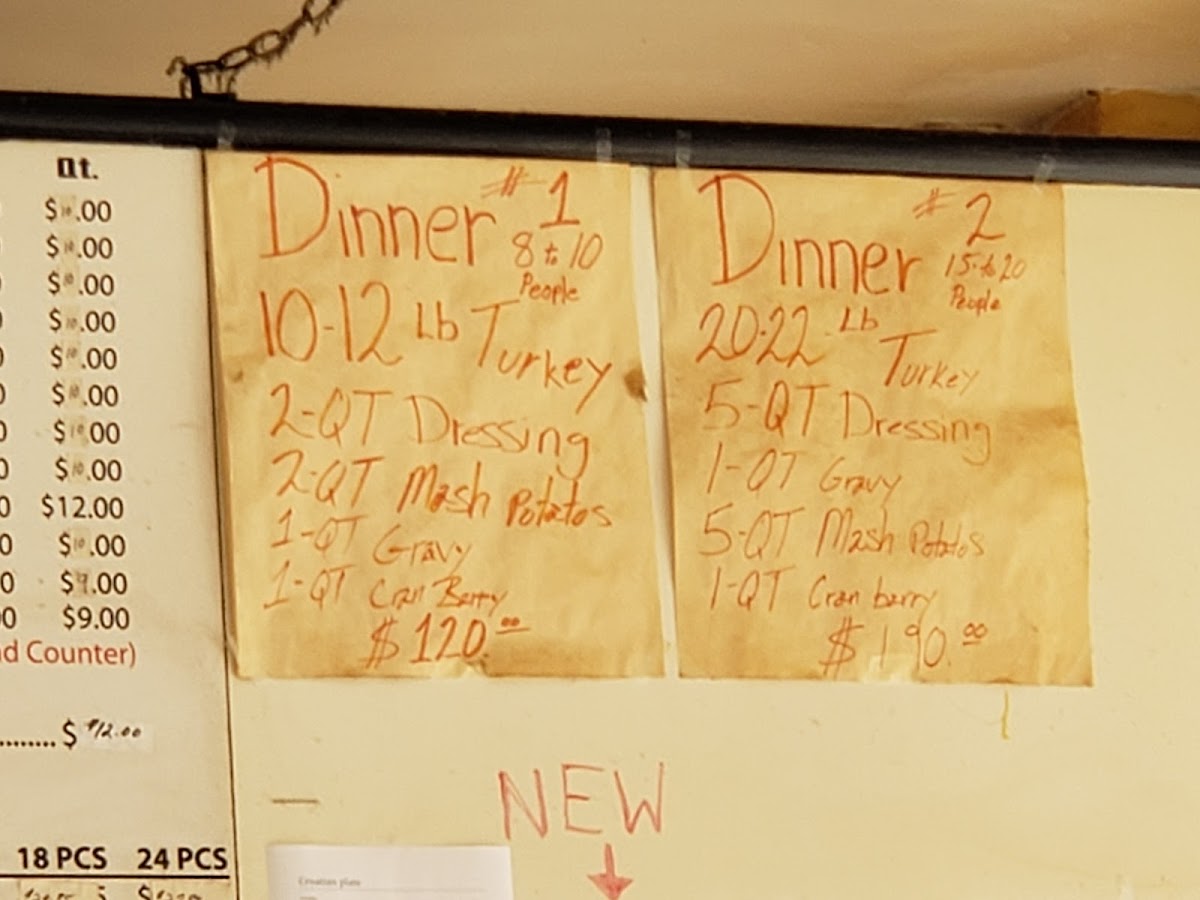 Qt.
$10.00
$10.00
$10.00
$10.00
$10.00
$10.00
$10.00
$10.00
$12.00
$10.00
$9.00
$9.00
Counter)
$ $12.00
18 PCS 24 PCS
Dinner #1
8 to 10
People
10-12 Lb Turkey
2-QT Dressing
2-QT Mash Potatos
1-QT Gravy
1-QT Cran Berry
$120.00
Dinner #2
15 to 20
People
20-22 Lb Turkey
5-QT Dressing
1-QT Gravy
5-QT Mash Potatos
1-QT Cran barry
$190.00
NEW
Croatian plate